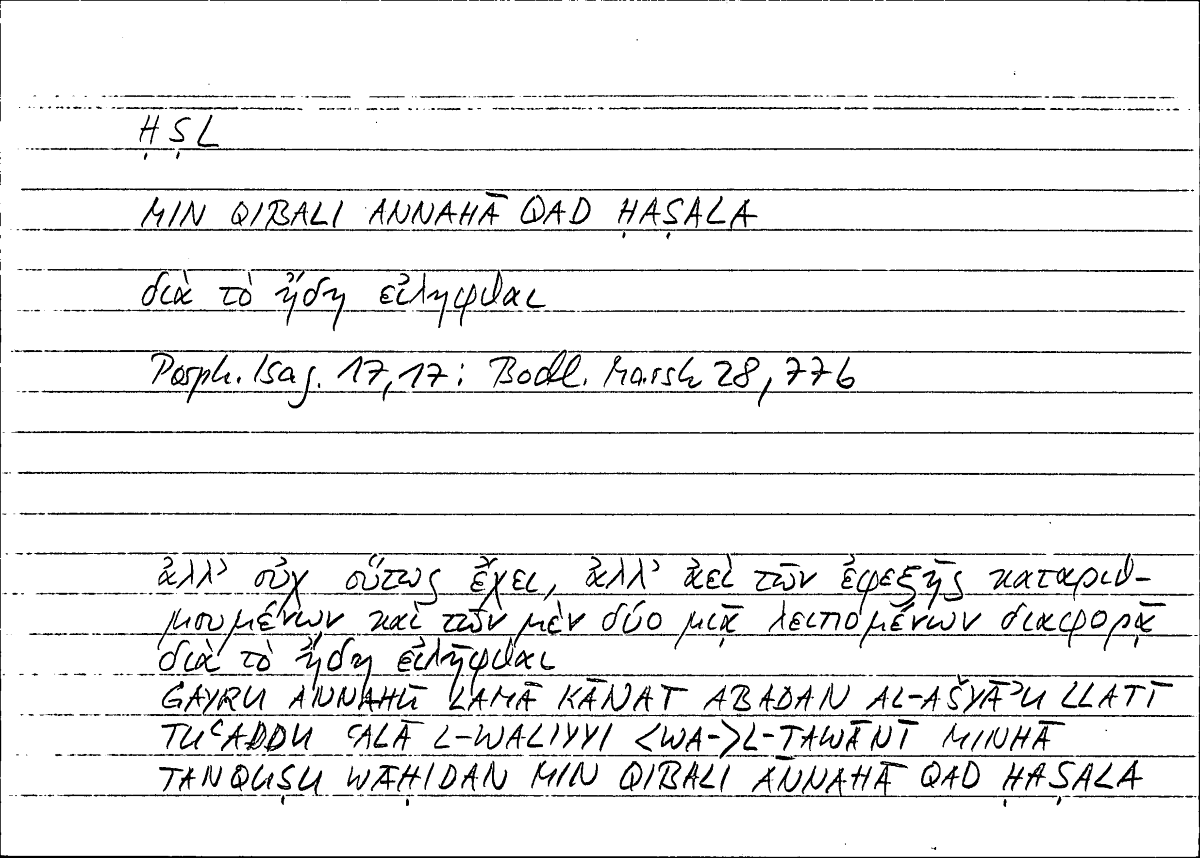 ḤṢL
MIN QIBALI ANNAHĀ QAD ḤAṢALA
διὰ τὸ ἤδη εἰληφθαι
Porph. Isag. 17,17: Bodl. Marsh 28, 77b
ἀλλ’ οὐχ οὕτως ἔχει, ἀλλ’ ἀεὶ τῶν ἐφεξῆς καταριθ-
μουμένων καὶ τῶν μὲν δύο μιᾷ λειπομένων διαφορᾷ
διὰ τὸ ἤδη εἰλῆφθαι
GAYRU ANNAHŪ LAMĀ KĀNAT ABADAN AL-AŠYĀʾU LLATĪ
TUʿADDU ʿALĀ L-WALIYYI <WA->L-TAWĀNĪ MINHĀ
TANQUṢU WĀḤIDAN MIN QIBALI ANNAHĀ QAD ḤAṢALA